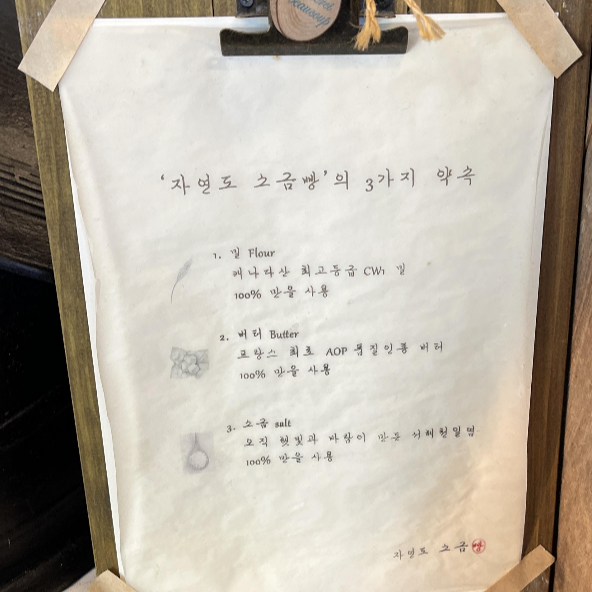 '자연도 소금빵'의 3가지 약속
1. 밀 Flour
캐나다산 최고등급 CW1 밀
100% 만을 사용
2. 버터 Butter
프랑스 최초 AOP 품질인증 버터
100% 만을 사용
3. 소금 salt
오직 햇빛과 바람이 만든 서해천일염
100% 만을 사용
자연도 소금빵